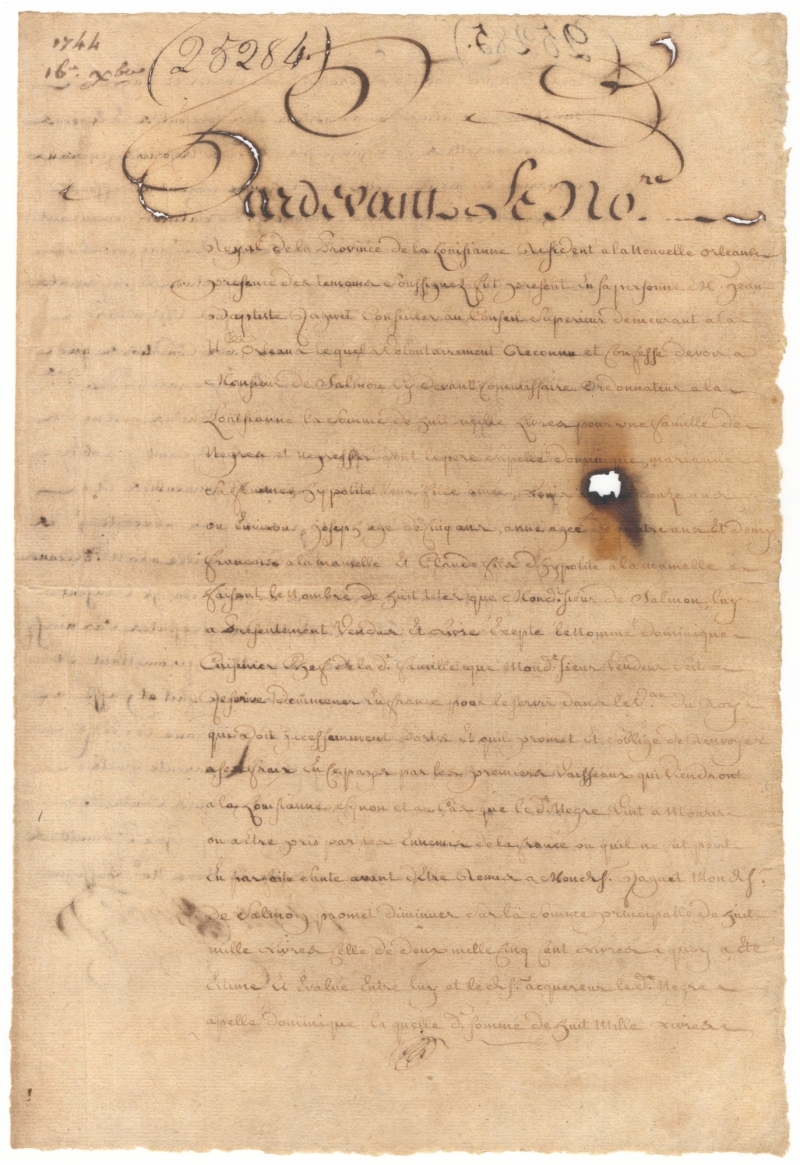 1744
16e xbre
(25284.)
Pardevant Le No.re
Royal de la Province de la Loüisianne Resident a la Nouvelle orleans
presence des temoins soussignez fut present En sa personne M. Jean
Baptiste Raguet Conseiller au Conseil Superieur demeurant a la
N.lle Orleans lequel a Volontairement Reconnu et Confessé devoir a
Monsieur de Salmon Cy devant Commissaire Ordonnateur a la
Loüisianne la Somme de huit mille Livres pour une famille de
Negres et negresses dont le pere apellé dominique, marianne
Sa femme, hypolite leur fille onze ans
ou Environ, Joseph agé de Cinq ans, anne agée de quatre ans Et demy
francoise a la mamelle Et Claude fils d'hypolite a la mamelle
faisant le Nombre de huit testes que Mond. Sieur de Salmon luy
a Presentement Vendus Et Livré Exepté le Nommé dominique
Cuisinier Chef de la d. famille que Mond. Sieur Vendeur s'est
Reservé d'Emmener En france pour le servir dans le du Roy
qui doit incessemment partir Et quil promet Et s'oblige de Renvoyer
a ses frais En Ce pays par les premiers Vaisseaux qui Viendront
a la Loüisianne, sinon et au Cas que le d. Negre Vint a Mourir
ou a Etre pris par les Ennemis de la france ou quil ne fut point
En parfaite Sante avant d'Etre Remis a Mond. S. Raguet Mond. S.
de Salmon promet diminuer sur la Somme principalle de huit
mille Livres Celle de deux mille Cinq Cent Livres a quoy a Eté
Estimé Et Evalué Entre luy et led. S. acquereur le d. Negre
apellé dominique la quelle d. Somme de huit Mille Livres